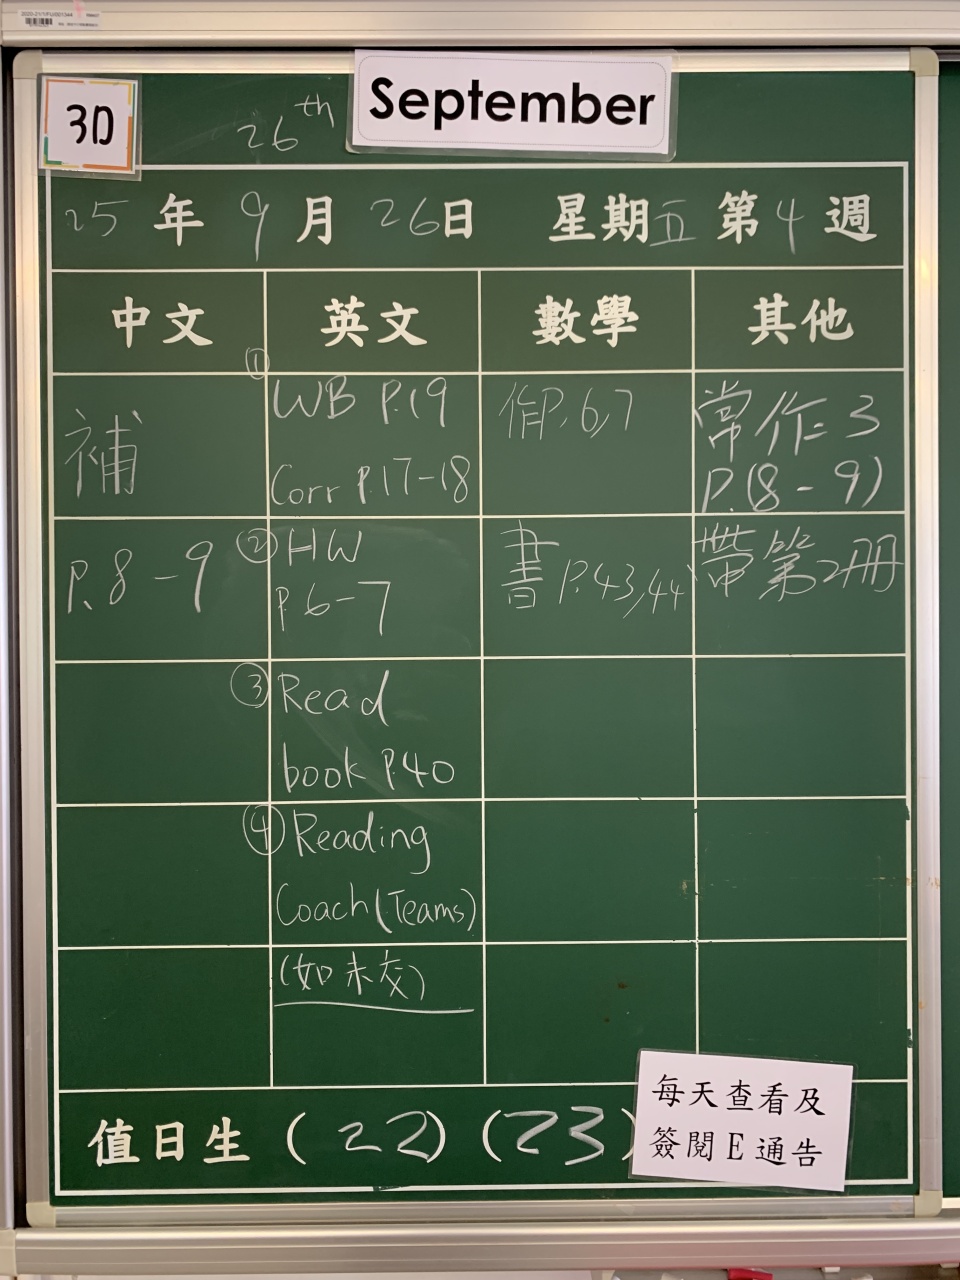 3D
September
26th
25年9月26日 星期五 第4週
中文 英文 數學 其他
補
P.8-9
① WB P.19
Corr P.17-18
② HW
P.6-7
③ Read
book P.40
④ Reading
Coach (Teams)
(如未交)
P.6,7
書 P.43,44
常作=3
P.(8-9)
帶第2冊
值日生 (22) (23)
每天查看及
簽閱E通告